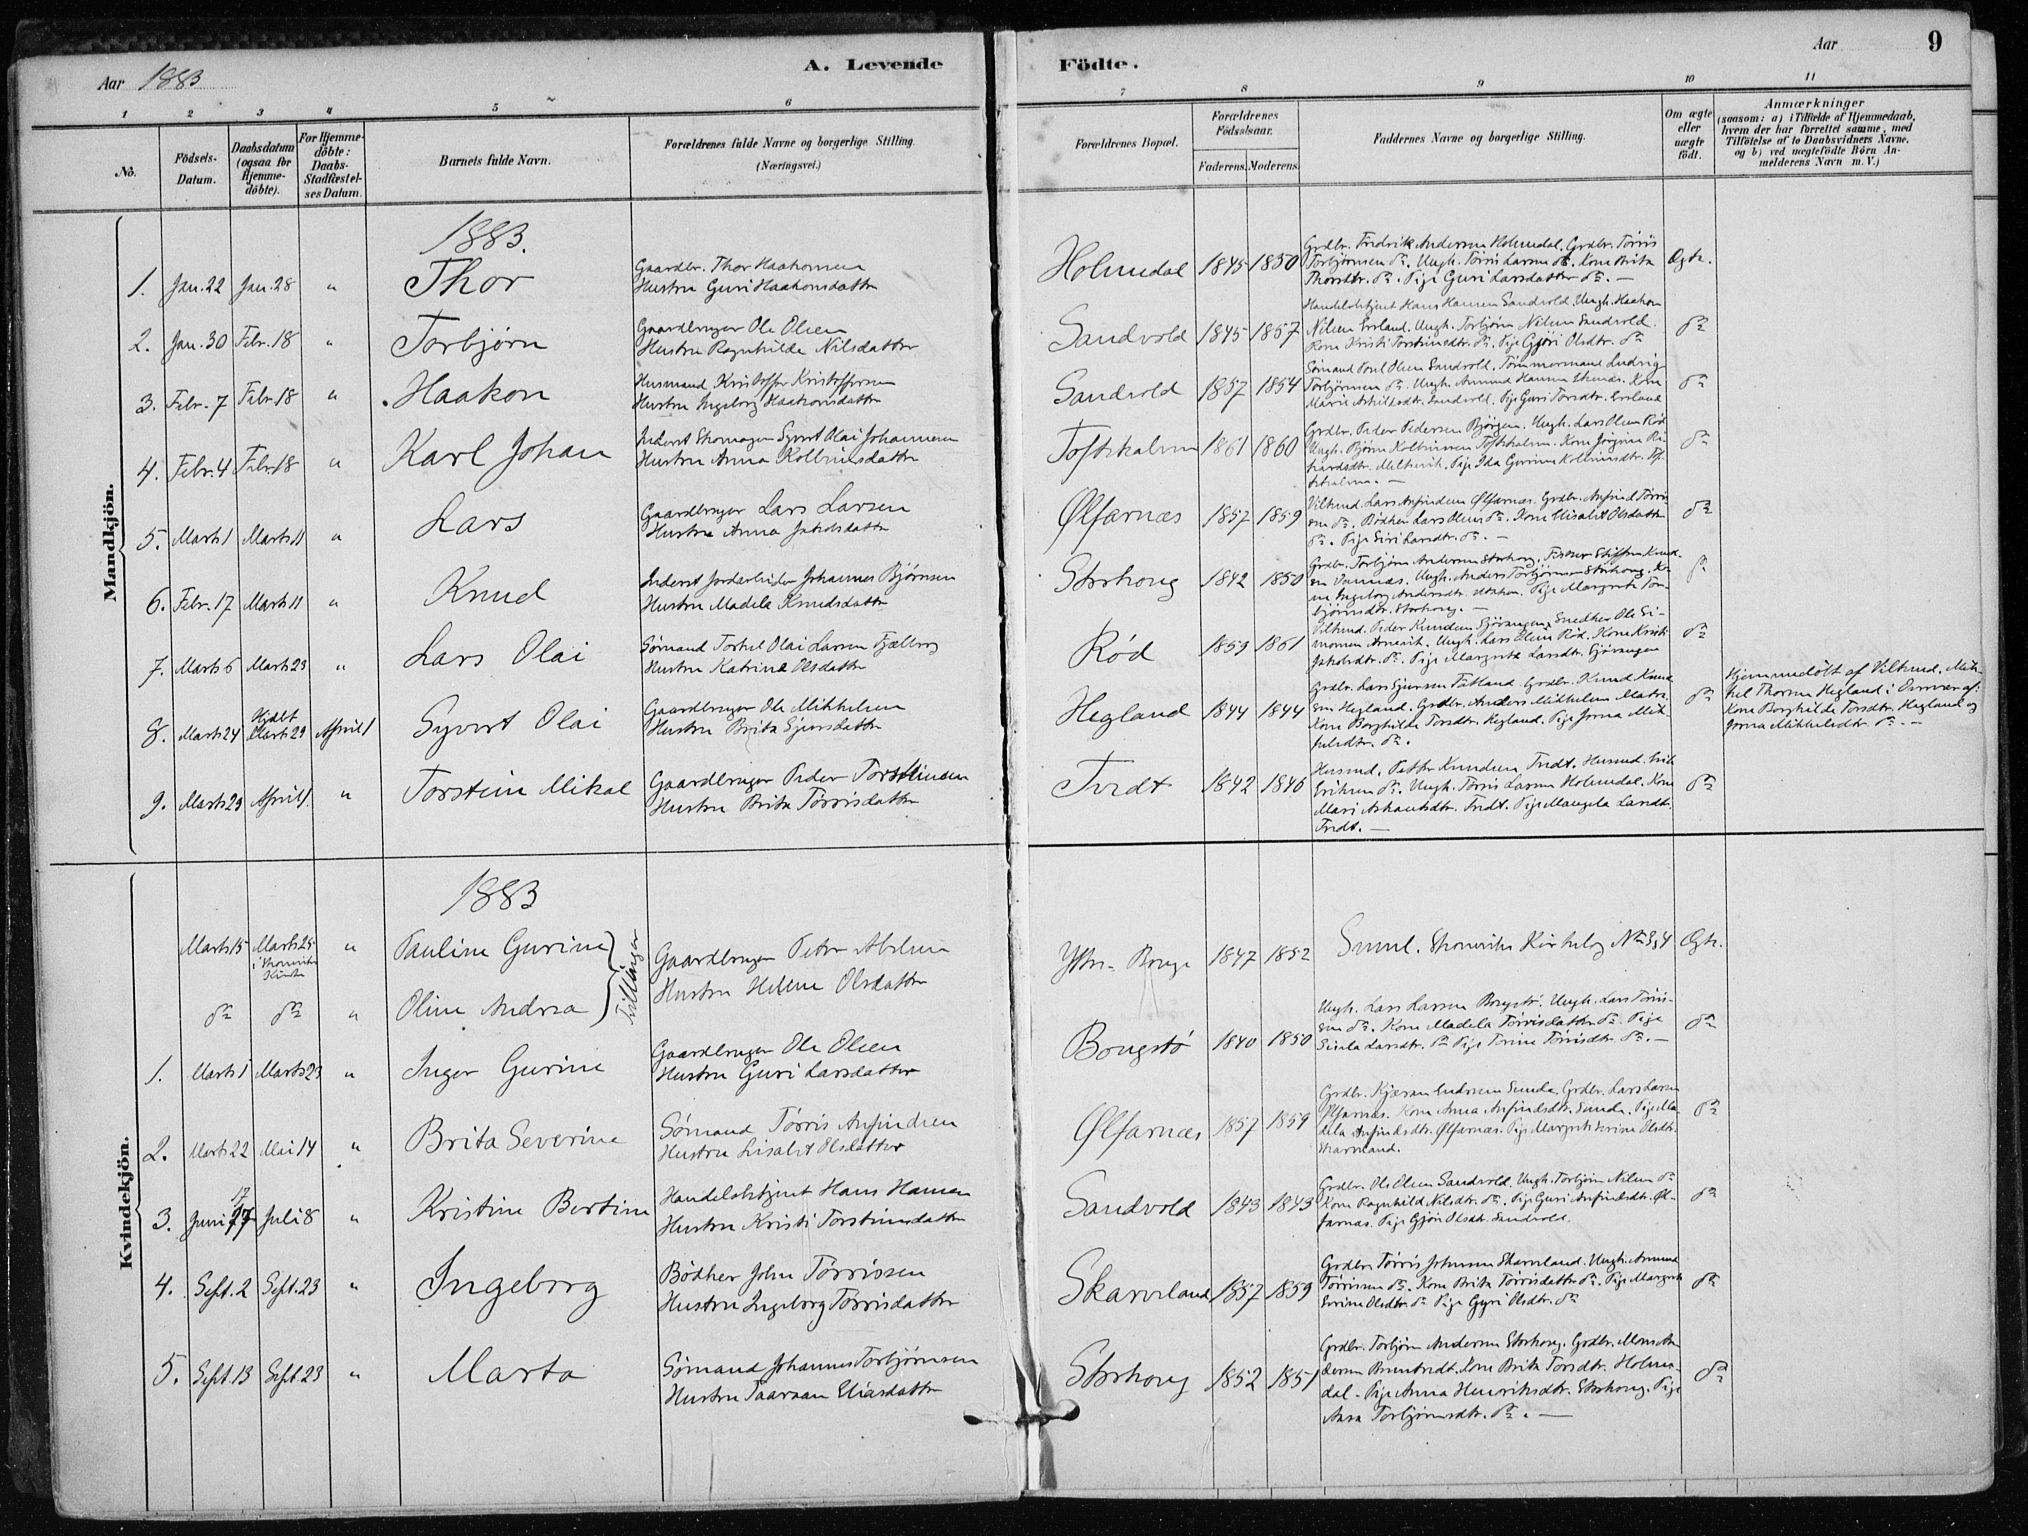 Aar 1883
A. Levende
Födte.
Aar
9
1 2 3 4 5 6 7 8 9 10 11
No.
Födsels-Datum.
Daabsdatum (ogsaa for Hjemme-döbte).
For Hjemme-döbte: Daabs-Stadfæstel-ses Datum.
Barnets fulde Navn.
Forældrenes fulde Navne og borgerlige Stilling. (Næringsvei.)
Forældrenes Bopæl.
Forældrenes Födselsaar.
Faderens. Moderens.
Faddernes Navne og borgerlige Stilling.
Om ægte eller uægte födt.
Anmærkninger (saasom: a) i Tilfælde af Hjemmedaab, hvem der har forrettet samme, med Tilföielse af to Daabsvidners Navne, og b) ved uægtefödte Börn An-melderens Navn m. V.)
Mandkjön.
1883.
1. Jan. 22 Jan. 28 " Thor
Gaardbr. Thor Haakonsen
Hustru Guri Haakonsdatter
Holmedal 1845 1850
Grdbr. Fredrik Andersen Holmedal, Grdbr. Tørris
Torbjørnsen do. Ungk. Tørris Larsen do. Kone Brita
Thorsdtr. do. Pige Guri Larsdatter do. —
Ægte.
2. Jan. 30 Febr. 18 " Torbjørn
Gaardbruger Ole Olsen
Hustru Ragnhilde Nilsdatter
Sandvold 1845 1857
Handelsbetjent Hans Hansen Sandvold, Ungk. Haakon
Nilsen Ersland. Ungk. Torbjørn Nilsen Sandvold.
Kone Kristi Torsteinsdtr. do. Pige Gjøri Olsdtr. do
do
3. Febr. 7 Febr. 18 " Haakon
Husmand Kristoffer Kristoffersen
Hustru Ingeborg Haakonsdatter
Sandvold 1857 1854
Sømand Poul Olsen Sandvold, Tømmermand Ludvig
Torbjørnsen do. Ungk. Amund Hansen Kone
Marie Sandvold, Pige Guri Torsdtr. Ersland
do
4. Febr. 4 Febr. 18 " Karl Johan
Inderst Skomager Syvert Olai Johannesen
Hustru Anna Kolbeinsdatter
Toftekalven 1861 1860
Grdbr. Peder Pedersen Bjørgen, Ungk. Lars Olsen Rød
Ungk. Bjørn Kolbeinsen Toftekalven. Kone Jørgine Ri-
kardsdtr. Melkevik. Pige Ida Gurine Kolbeinsdtr. Tof-
tekalven. —
do
5. Marts 1 Marts 11 " Lars
Gaardbruger Lars Larsen
Hustru Anna Jakobsdatter
Ølfarnæs 1857 1859
Lars Anfindsen Ølfarnæs. Grdbr. Anfind Tørris-
sen do. Bødker Lars Olsen do. Kone Elisabet Olsdatter
do. Pige Siri Larsdtr. do. —
do
6. Febr. 17 Marts 11 " Knud
Inderst Jordarbeider Johannes Bjørnsen
Hustru Madela Knudsdatter
Storhoug 1842 1850
Grdbr. Torbjørn Andersen Storhoug, Steffen Knud-
sen Ungk. Anders Torbjørnsen Storhoug. Ko-
ne Ingeborg Andersdtr. Pige Margrete Tor-
bjørnsdtr. Storhoug. —
do
7. Marts 6 Marts 23 " Lars Olai
Sømand Torkel Olai Larsen Fjælberg
Hustru Katrine Olsdatter
Rød 1859 1861
Peder Knudsen Gjøvaagen, Snedker Ole Si-
monsen Ungk. Lars Olsen Rød. Kone Kristi
Jakobsdtr. do. Pige Margrete Larsdtr. Gjøvaagen
do
8. Marts 24 Hjdbt. Marts 29 April 1 Syvert Olai
Gaardbruger Ole Mikkelsen
Hustru Brita Sjursdatter
Hegland 1844 1844
Grdbr. Lars Sjursen Tatland. Grdbr. Knud Knud-
sen Hegland. Grdbr. Anders Mikkelsen Matre.
Kone Borghilde Torsdtr. Hegland. Pige Jorna Mik-
kelsdtr. do.
do
Hjemmedöbt af Mik-
kel Thorsen Hegland i Overvær af:
Kone Borghilde Torsdtr. Hegland og
Jorna Mikkelsdtr. do. —
9. Marts 23 April 1. " Torstein Mikal
Gaardbruger Peder Torsteinsen
Hustru Brita Tørrisdatter
Tvedt 1842 1846
Husmd. Petter Knudsen Tvedt. Husmd. Erik
Eriksen do. Ungk. Tørris Larsen Holmedal. Kone
Mari Tvedt. Pige Mangela Larsdt.
Tvedt. —
do
Kvindekjön.
1883
Marts 15 Marts 25 i Skonevik Kirke " Pauline Gurine
do do " Oline Andrea
Tvillinger
Gaardbruger Peter Abelsen
Hustru Helene Olsdatter
Yttre Bouge 1847 1852
Smml. Skonevik Kirkebog No 3, 4
Ægte.
1. Marts 1 Marts 23 " Inger Gurine
Gaardbruger Ole Olsen
Hustru Guri Larsdatter
Bougstø 1840 1850
Ungk. Lars Larsen Bougstø. Ungk. Lars Tørris-
sen do. Kone Madela Tørrisdatter do. Pige
Sisela Larsdtr. do Pige Torine Tørrisdtr. do. —
do
2. Marts 22 Mai 14 " Brita Severine
Sømand Tørris Anfindsen
Hustru Lisabet Olsdatter
Ølfarnæs 1857 1859
Grdbr. Kjæran Endresen Sunde, Grdbr. Lars Larsen
Ølfarnæs. Kone Anna Anfindsdtr. Sunde. Pige Ma-
dela Anfindsdtr. Ølfarnæs. Pige Margrete Serine Olsdtr.
do
3. Juni 17 17 Juli 8 " Kristine Bertine
Handelsbetjent Hans Hansen
Hustru Kristi Torsteinsdatter
Sandvold 1843 1843
Grdbr. Ole Olsen Sandvold, Ungk. Torbjørn Nilsen do
Kone Ragnhild Nilsdtr. do. Pige Guri Anfindsdtr. Øl-
farnæs. Pige Gjøri Olsdtr. Sandvold.
do
4. Sept. 2 Sept. 23 " Ingeborg
Bødker John Tørrissen
Hustru Ingeborg Tørrisdatter
Skarveland 1857 1859
Grdbr. Tørris Johnsen Skarveland. Ungk. Amund
Tørrissen do. Kone Brita Tørrisdatter do. Pige Margrete
Serine Olsdtr. do Pige Gyri Olsdtr. do
do
5. Sept. 13 Sept. 23 " Marta
Sømand Johannes Torbjørnsen
Hustru Taaraan Eliasdatter
Storhoug 1852 1851
Grdbr. Torbjørn Andersen Storhoug. Grdbr. Mons An-
dersen Kone Brita Torsdtr. Holme-
dal. Pige Anna Henriksdtr. Storhoug. Pige
Aasa Torbjørnsdtr. do. —
do